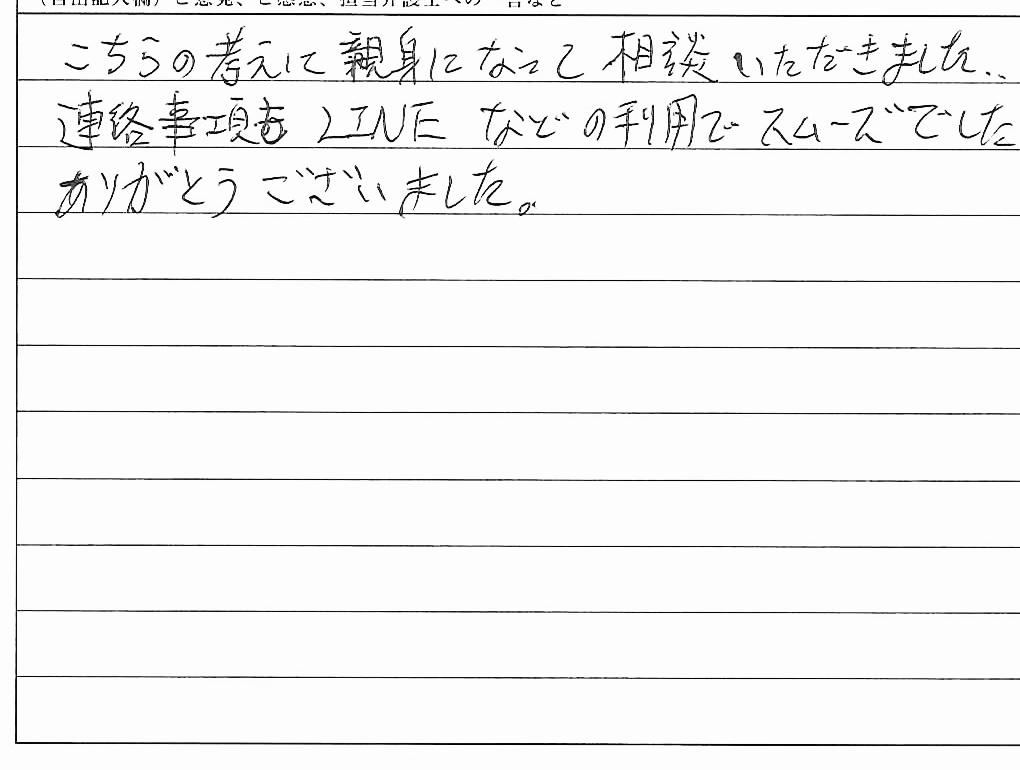 (自由記入欄)ご意見、ご感想、担当弁護士への一言など
こちらの考えに親身になって相談いただきました。
連絡事項も LINE などの利用でスムーズでした
ありがとうございました。